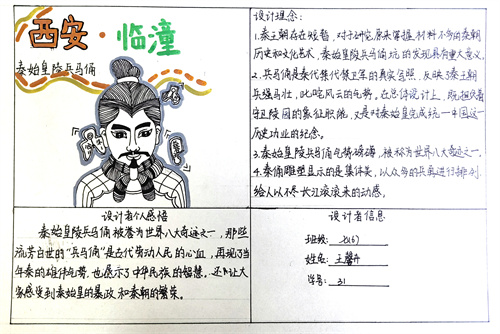 西安·临潼
秦始皇陵兵马俑
设计理念:
1.秦王朝存在短暂,对于研究原来掌握材料不多的秦朝
历史和文化艺术,秦始皇陵兵马俑坑的发现具有重大意义。
2.兵马俑是秦代集代俑卫军的真实写照,反映了秦王朝
兵强马壮,叱咤风云的气势。在总体设计上,既担负着
守卫陵园的象征职能,又是对秦始皇完成统一中国这一
历史功业的纪念。
3.秦始皇陵兵马俑气势磅礴,被称为世界八大奇迹之一。
4.秦俑雕塑显示的是集体美,以众多的兵马进行排列
给人以不尽长江滚滚来的动感。
设计者个人感悟
秦始皇陵兵马俑被誉为世界八大奇迹之一,那些
流芳百世的“兵马俑”是古代劳动人民的心血,再现了当
年秦的雄伟气势,也展示了中华民族的智慧。还让大
家感受到秦始皇的暴政和秦朝的繁荣。
设计者信息
班级:
姓名:王馨卉
学号:31